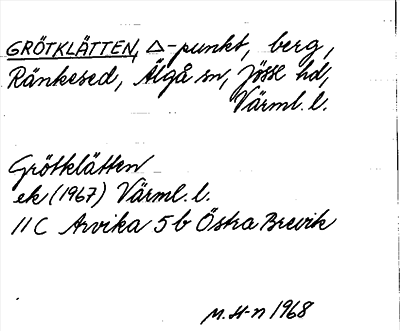 GRÖTKLÄTTEN, △-punkt, berg,
Ränkesed, Älgå sn, Jösse hd,
Värml. l.
Grötklätten
ek (1967) Värml. l.
11 C Arvika 5 b Östra Brevik
M. H-n 1968